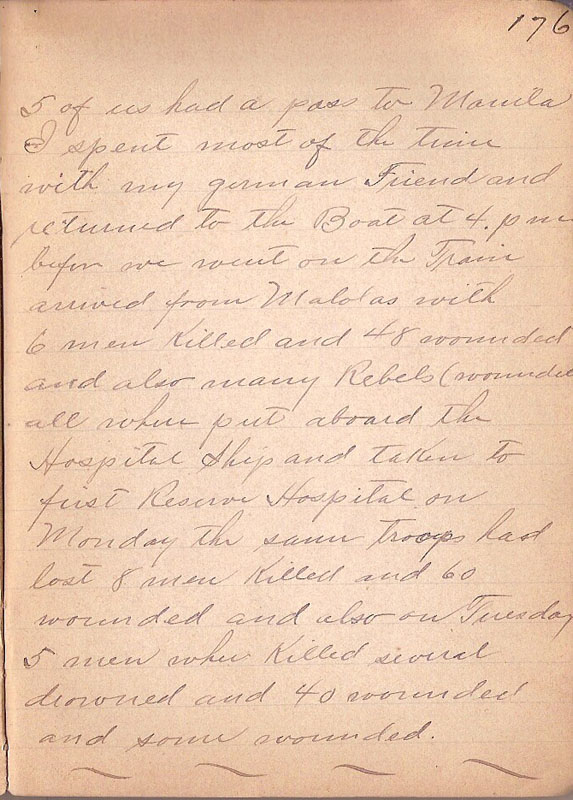 176
5 of us had a pass to Manila
I spent most of the time
with my german Friend and
returned to the Boat at 4. p m
befor we went on the Train
arrived from Malolas with
6 men Killed and 48 wounded
and also many Rebels (wounded
all wher put aboard the
Hospital Ship and taken to
first Reserve Hospital on
Monday the same troops had
lost 8 men Killed and 60
wounded and also on Tuesday
5 men wher Killed several
drowned and 40 wounded
and some wounded.